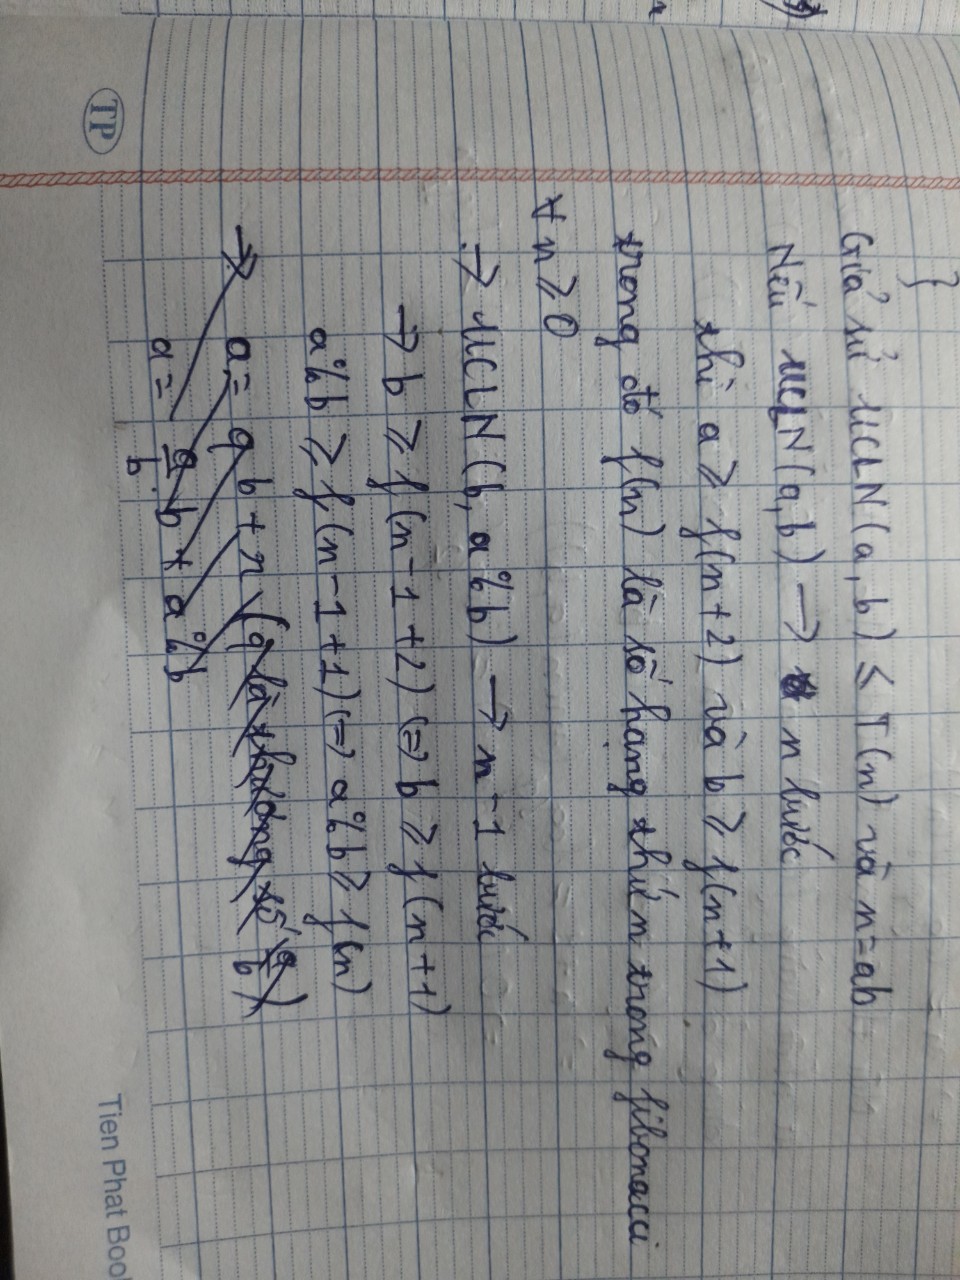 }
Giả sử ƯCLN(a, b) ≤ T(n) và n=ab
Nếu ƯCLN(a,b) → n bước
thì a ≥ f(n+2) và b ≥ f(n+1)
trong đó f(n) là số hạng thứ n trong fibonacci
∀ n ≥ 0
→ ƯCLN(b, a%b) → n-1 bước
→ b ≥ f(n-1+2) (=) b ≥ f(n+1)
a%b ≥ f(n-1+1) (=) a%b ≥ f(n)
→ a = qb + r (q là thương số a/b)
a = a/b . b + a%b
TP
Tien Phat Boo